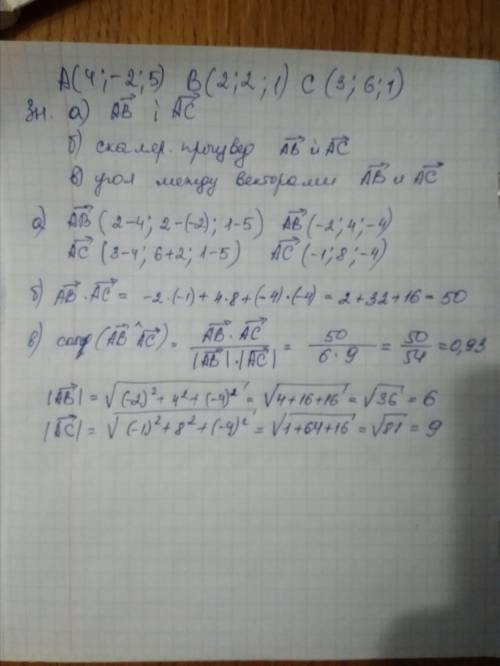 A(4;-2;5) B(2;2;1) C(3;6;1)
Зн. а) AB⃗ і AC⃗
б) скаляр. произвед AB⃗ и AC⃗
в) угол между векторами AB⃗ и AC⃗
а) AB⃗ (2-4; 2-(-2); 1-5) AB⃗(-2; 4; -4)
AC⃗ (3-4; 6+2; 1-5) AC⃗ (-1; 8; -4)
б) AB⃗ · AC⃗ = -2·(-1) + 4·8 + (-4)·(-4) = 2+32+16 = 50
в) (AB⃗ ^ AC⃗) = AB⃗ · AC⃗ / |AB⃗|·|AC⃗| = 50 / 6·9 = 50/54 = 0,93
|AB⃗| = √((-2)²+4²+(-4)²) = √(4+16+16) = √36 = 6
|AC⃗| = √((-1)²+8²+(-4)²) = √(1+64+16) = √81 = 9